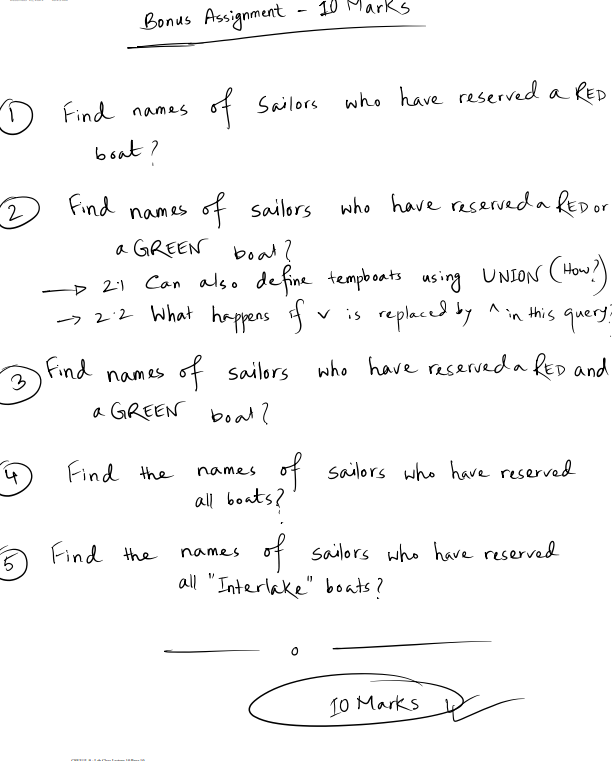 Bonus Assignment - 10 Marks
① Find names of Sailors who have reserved a RED
boat?
② Find names of sailors who have reserved a RED or
a GREEN boat?
→ 2.1 Can also define tempboats using UNION (How?)
→ 2.2 What happens if ∨ is replaced by ^ in this query?
③ Find names of sailors who have reserved a RED and
a GREEN boat?
④ Find the names of sailors who have reserved
all boats?
⑤ Find the names of sailors who have reserved
all "Interlake" boats?
10 Marks